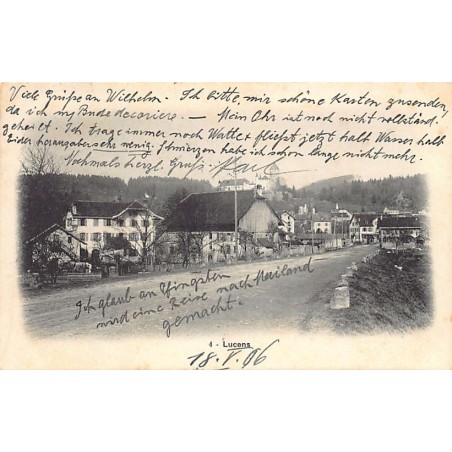 Viele Grüße an Wilhelm. Ich bitte, mir schöne Karten zusenden,
da ich my Bude decoriere. — Mein Ohr ist noch nicht vollständ.
geheilt. Ich trage immer noch Watte & fließt jetzt halb Wasser halb
Eider heraus aber sehr wenig. Schmerzen habe ich schon lange nicht mehr.
Nochmals herzl. Gruß.
Ich glaub an Pfingsten
wird eine Reise nach Mailand
gemacht.
4 - Lucens
18. V. 06